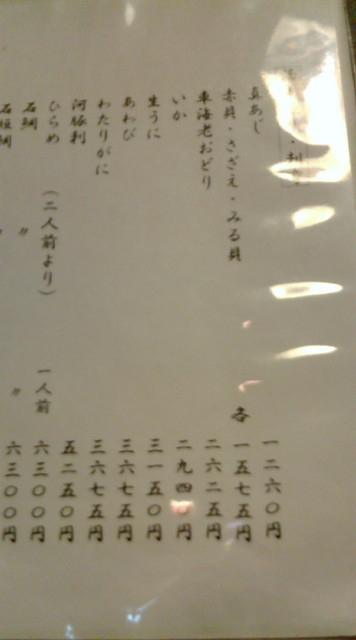 真あじ 一二六〇円
赤貝・さざえ・みる貝 各 一五七五円
車海老おどり 二六二五円
いか 二九四〇円
生うに 三一五〇円
あわび 三六七五円
わたりがに 三六七五円
河豚刺 五二五〇円
ひらめ (二人前より) 一人前 六三〇〇円
石鯛 〃 〃 六三〇〇円